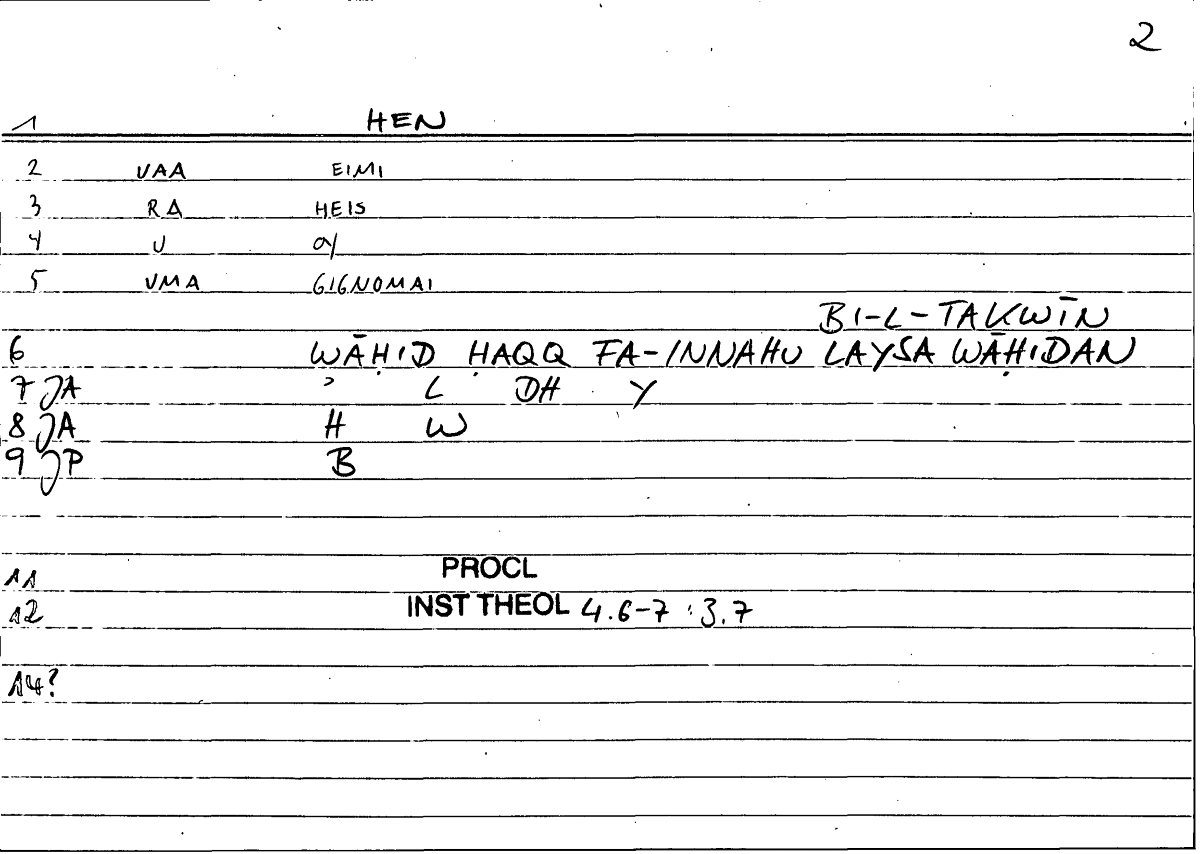 2
1 HEN
2 VAA EIMI
3 RA HEIS
4 U
5 VMA GIGNOMAI
BI-L-TAKWĪN
6 WĀḤID ḤAQQ FA-INNAHU LAYSA WĀḤIDAN
7 JA ʾ L DH Y
8 JA H W
9 JP B
11 PROCL
12 INST THEOL 4.6-7 : 3.7
14?